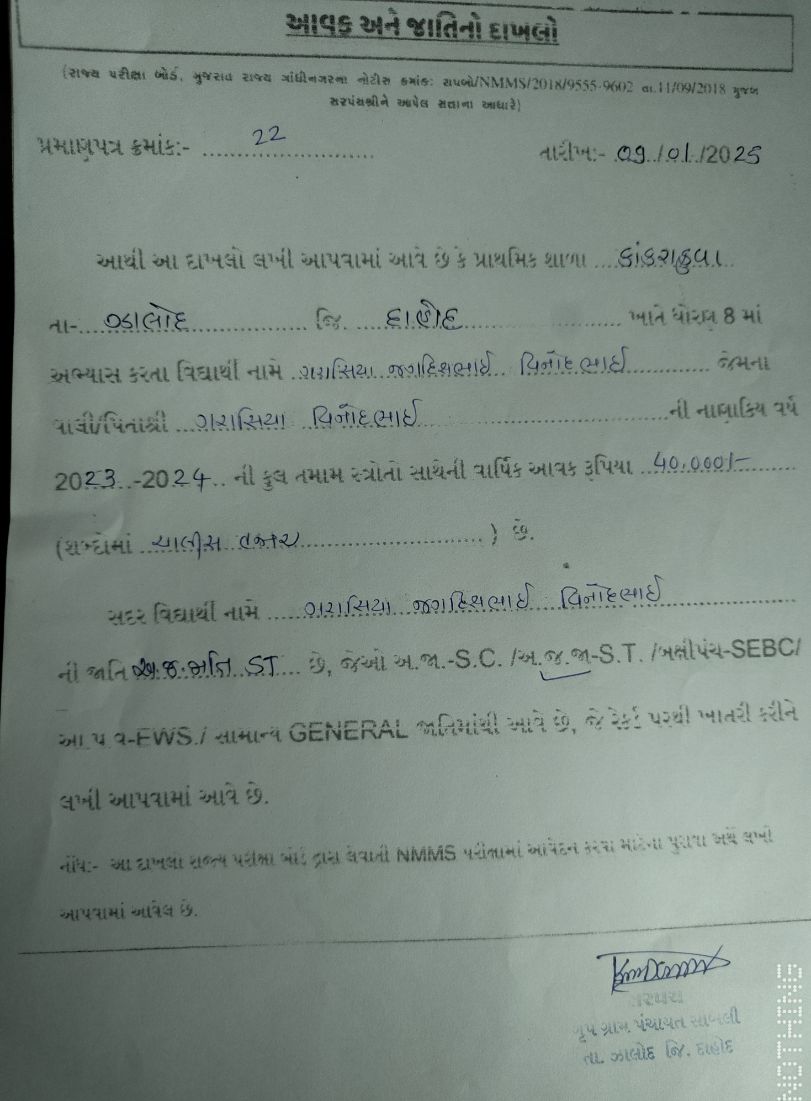 આવક અને જાતિનો દાખલો
(રાજ્ય પરીક્ષા બોર્ડ, ગુજરાત રાજ્ય ગાંધીનગરના નોટીસ ક્રમાંક: રાપબો/NMMS/2018/9555-9602 તા.11/09/2018 મુજબ
સરપંચશ્રીને આપેલ સત્તાના આધારે)
પ્રમાણપત્ર ક્રમાંક:- 22 તારીખ:- 09/01/2025
આથી આ દાખલો લખી આપવામાં આવે છે કે પ્રાથમિક શાળા કાંકરાકુવા
તા- ઝાલોદ જિ. દાહોદ ખાતે ધોરણ 8 માં
અભ્યાસ કરતા વિદ્યાર્થી નામે ગરાસિયા જગદિશભાઈ વિનોદભાઈ જેમના
વાલી/પિતાશ્રી ગરાસિયા વિનોદભાઈ ની નાણાકિય વર્ષ
2023-2024 ની કુલ તમામ સ્ત્રોતો સાથેની વાર્ષિક આવક રૂપિયા 40,000/-
(શબ્દોમાં ચાલીસ હજાર) છે.
સદર વિદ્યાર્થી નામે ગરાસિયા જગદિશભાઈ વિનોદભાઈ
ની જાતિ ST છે, જેઓ અ.જા.-S.C. /અ.જ.જા-S.T. /બક્ષીપંચ-SEBC/
આ પ વ-EWS./ સામાન્ય GENERAL જાતિમાંથી આવે છે, જે રેકર્ડ પરથી ખાતરી કરીને
લખી આપવામાં આવે છે.
નોંધ:- આ દાખલો રાજ્ય પરીક્ષા બોર્ડ દ્વારા લેવાતી NMMS પરીક્ષામાં આવેદન કરવા માટેના પુરાવા અર્થે લખી
આપવામાં આવેલ છે.
સરપંચ
ગૃપ ગ્રામ પંચાયત
તા. ઝાલોદ જિ. દાહોદ
NOTHING